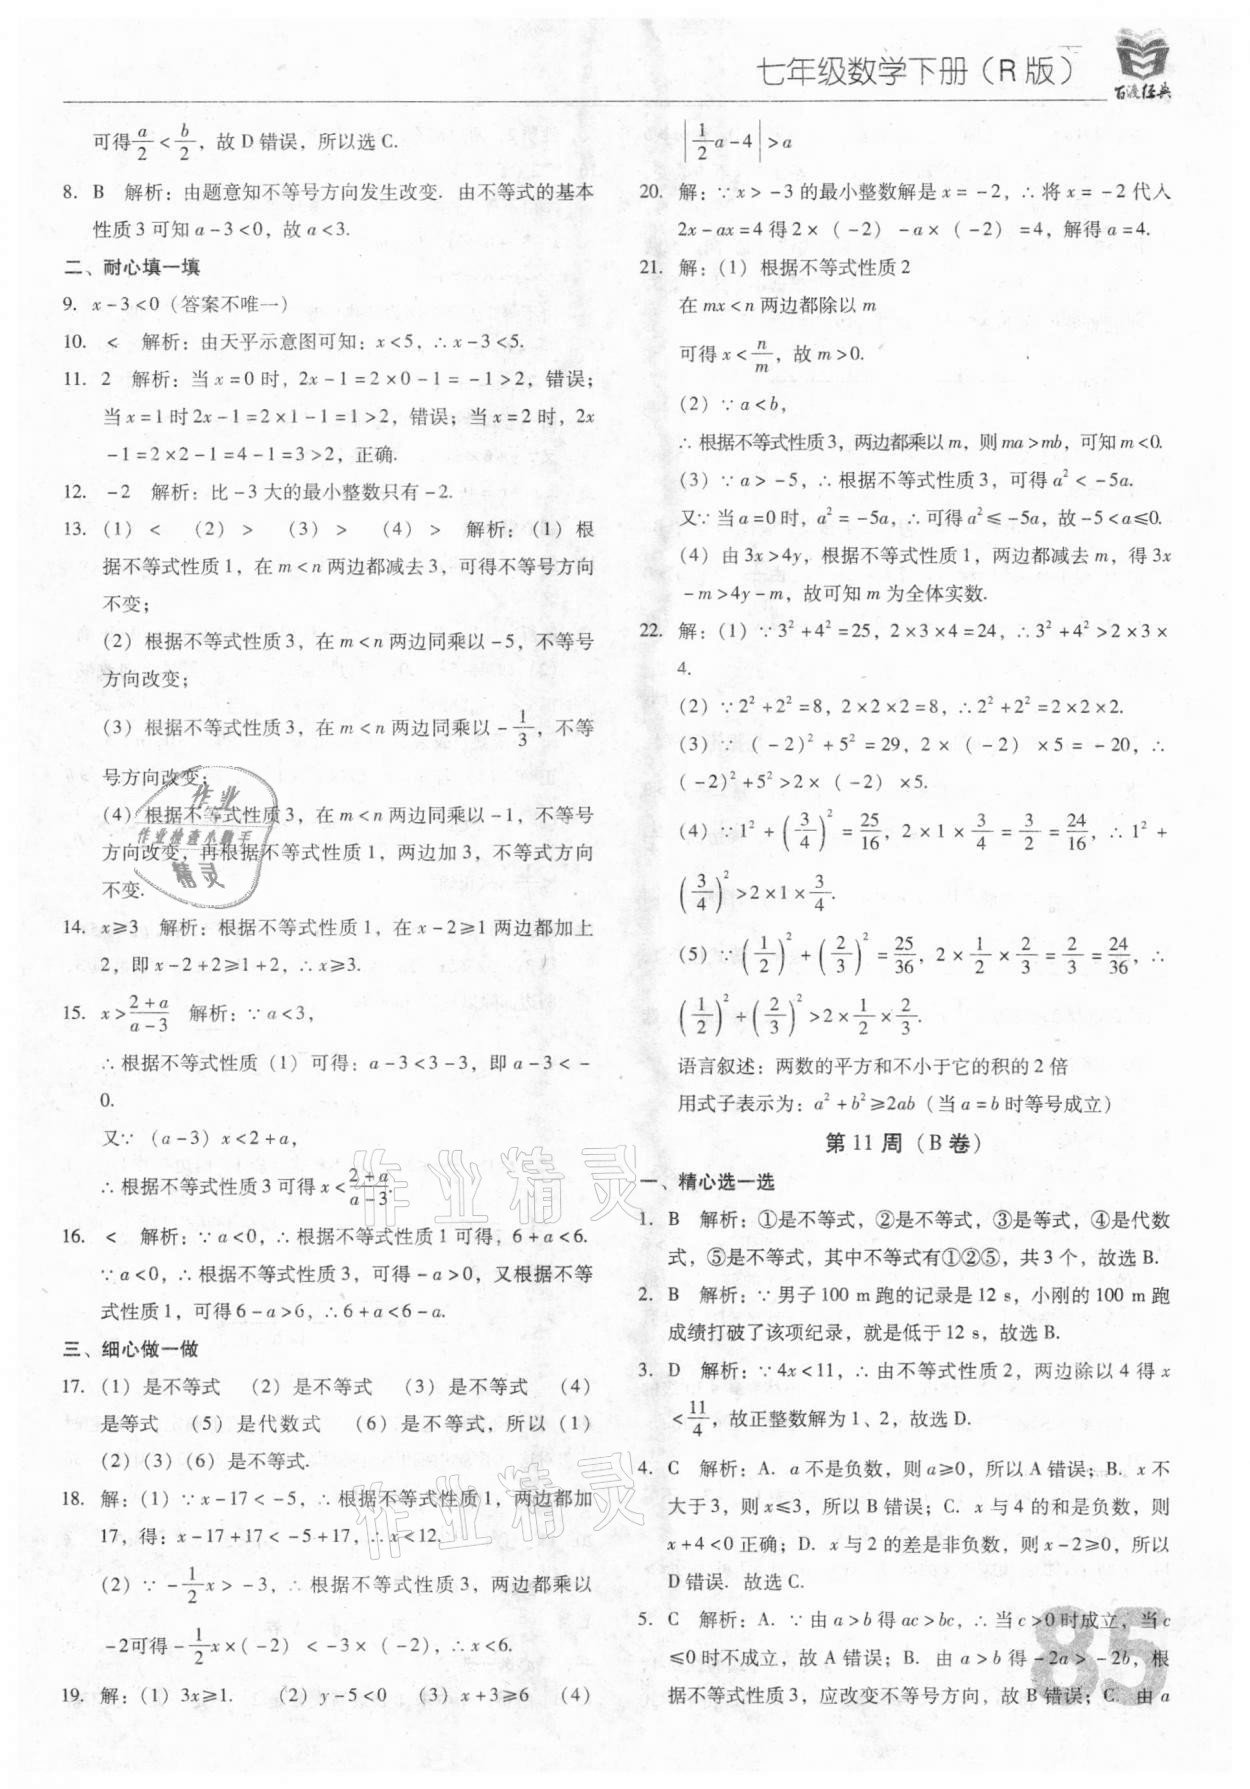 七年级数学下册(R版)
百渡经典
可得a/2<b/2，故D错误，所以选C.
8. B 解析：由题意知不等号方向发生改变. 由不等式的基本
性质3可知a-3<0，故a<3.
二、耐心填一填
9. x-3<0(答案不唯一)
10. < 解析：由天平示意图可知：x<5，∴x-3<5.
11. 2 解析：当x=0时，2x-1=2×0-1=-1>2，错误；
当x=1时2x-1=2×1-1=1>2，错误；当x=2时，2x
-1=2×2-1=4-1=3>2，正确.
12. -2 解析：比-3大的最小整数只有-2.
13. (1)< (2)> (3)> (4)> 解析：(1)根
据不等式性质1，在m<n两边都减去3，可得不等号方向
不变；
(2)根据不等式性质3，在m<n两边同乘以-5，不等号
方向改变；
(3)根据不等式性质3，在m<n两边同乘以-1/3，不等
号方向改变；
(4)根据不等式性质3，在m<n两边同乘以-1，不等号
方向改变，再根据不等式性质1，两边加3，不等式方向
不变.
14. x≥3 解析：根据不等式性质1，在x-2≥1两边都加上
2，即x-2+2≥1+2，∴x≥3.
15. x>(2+a)/(a-3) 解析：∵a<3，
∴根据不等式性质(1)可得：a-3<3-3，即a-3<-
0.
又∵(a-3)x<2+a，
∴根据不等式性质3可得x<(2+a)/(a-3).
16. < 解析：∵a<0，∴根据不等式性质1可得，6+a<6.
∵a<0，∴根据不等式性质3，可得-a>0，又根据不等
式性质1，可得6-a>6，∴6+a<6-a.
三、细心做一做
17. (1)是不等式 (2)是不等式 (3)是不等式 (4)
是等式 (5)是代数式 (6)是不等式，所以(1)
(2)(3)(6)是不等式.
18. 解：(1)∵x-17<-5，∴根据不等式性质1，两边都加
17，得：x-17+17<-5+17，∴x<12.
(2)∵-1/2x>-3，∴根据不等式性质3，两边都乘以
-2可得-1/2x×(-2)<-3×(-2)，∴x<6.
19. 解：(1)3x≥1. (2)y-5<0 (3)x+3≥6 (4)
|1/2a-4|>a
20. 解：∵x>-3的最小整数解是x=-2，∴将x=-2代入
2x-ax=4得2×(-2)-a×(-2)=4，解得a=4.
21. 解：(1)根据不等式性质2
在mx<n两边都除以m
可得x<n/m，故m>0.
(2)∵a<b，
∴根据不等式性质3，两边都乘以m，则ma>mb，可知m<0.
(3)∵a>-5，∴根据不等式性质3，可得a²<-5a.
又∵当a=0时，a²=-5a，∴可得a²≤-5a，故-5<a≤0.
(4)由3x>4y，根据不等式性质1，两边都减去m，得3x
-m>4y-m，故可知m为全体实数.
22. 解：(1)∵3²+4²=25，2×3×4=24，∴3²+4²>2×3×
4.
(2)∵2²+2²=8，2×2×2=8，∴2²+2²=2×2×2.
(3)∵(-2)²+5²=29，2×(-2)×5=-20，∴
(-2)²+5²>2×(-2)×5.
(4)∵1²+(3/4)²=25/16，2×1×3/4=3/2=24/16，∴1²+
(3/4)²>2×1×3/4.
(5)∵(1/2)²+(2/3)²=25/36，2×1/2×2/3=2/3=24/36，∴
(1/2)²+(2/3)²>2×1/2×2/3.
语言叙述：两数的平方和不小于它的积的2倍
用式子表示为：a²+b²≥2ab(当a=b时等号成立)
第11周(B卷)
一、精心选一选
1. B 解析：①是不等式，②是不等式，③是等式，④是代数
式，⑤是不等式，其中不等式有①②⑤，共3个，故选B.
2. B 解析：∵男子100 m跑的记录是12 s，小刚的100 m跑
成绩打破了该项纪录，就是低于12 s，故选B.
3. D 解析：∵4x<11，∴由不等式性质2，两边除以4得x
<11/4，故正整数解为1、2，故选D.
4. C 解析：A. a不是负数，则a≥0，所以A错误；B. x不
大于3，则x≤3，所以B错误；C. x与4的和是负数，则
x+4<0正确；D. x与2的差是非负数，则x-2≥0，所以
D错误. 故选C.
5. C 解析：A. ∵由a>b得ac>bc，∴当c>0时成立，当c
≤0时不成立，故A错误；B. 由a>b得-2a>-2b，根
据不等式性质3，应改变不等号方向，故B错误；C. 由a
85
作业
作业检查小助手
精灵
作业精灵
作业精灵